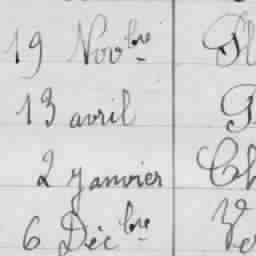 19 Novbre Pl
13 avril
2 Janvier Ch
6 Décbre Ve